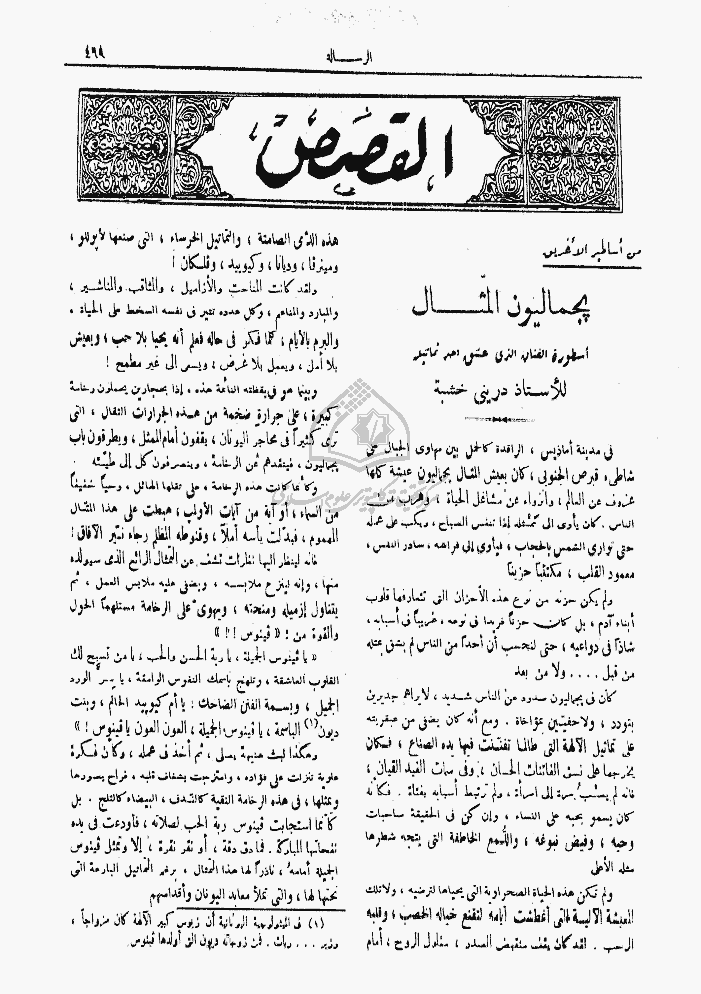 ٤٦٩
الرسالة
القصص
من أساطير الأغريق
پجماليون المثّال
أسطورة الفنان الذى عشق أحد تماثيله
للأستاذ دريني خشبة
في مدينة أماذيس ، الراقدة كالحلم بين مهاوى الجبال على
شاطىء قبرص الجنوبى ، كان يعيش المثال پجماليون عيشة كلها
عزوف عن العالم ، وانزواء عن مشاغل الحياة ، وهرب من
الناس . كان يأوى الى تمثاله إذا تنفس الصباح ، ويكب على عمله
حتى توارى الشمس بالحجاب ، فيأوى إلى فراشه ، سادر النفس ،
معمود القلب ، مكتئباً حزيناً
ولم يكن حزنه من نوع هذه الأحزان التى تتشارفها قلوب
أبناء آدم ، بل كان حزناً فريداً فى نوعه ، غريباً فى أسبابه ،
شاذاً فى دواعيه ، حتى لتحسب أن أحداً من الناس لم يشق بمثله
من قبل .... ولا من بعد
كان فى پجماليون صدود عن الناس شديد ، لايراهم جديرين
بتودد ، ولا حفيّين بمؤاخاة . ومع أنه كان يضفى من عبقريته
على تماثيل الآلهة التى طالما تفننت فيها يده الصناع ، فكان
يخرجها على نسق الفاتنات الحسان ، وفى سمات الغيد القيان ،
فانه لم يصبُ مرة إلى امرأة ، ولم ترتبط أسبابه بفتاة . فكأنه
كان يسمو بحبه على النساء ، وإن كن فى الحقيقة صاحبات
وحيه ، وفيض نبوغه ، واللُّمع الخاطفة التى يتجه شطرها
مثله الأعلى
ولم تكن هذه الحياة الصحراوية التى يحياها لترضيه ، ولا تلك
المعيشة الآلية التى أغطشت أيامه لتقنع خياله الخصب ، وقلبه
الرحب . لقد كان يقف منقبض الصدر ، مغلول الروح ، أمام
هذه الدُّمى الصامتة ، والتماثيل الخرساء ، التى صنعها لأپوللو ،
ومينرڤا ، وديانا ، وكيوپيد ، وڤلكان !
ولقد كانت المناحت والأزاميل ، والمثاقب والمناشير ،
والمبارد والمناعم ، وكل هذه تثير فى نفسه السخط على الحياة ،
والبرم بالأيام ، كلما فكر فى حاله فعلم أنه يحيا بلا حب ، ويعيش
بلا أمل ، ويعمل بلا غرض ، ويسعى الى غير مطمح !
وبينما هو فى يقظته النائمة هذه ، إذا بحجارين يحملون رخامة
كبيرة ، على جرارة ضخمة من هذه الجرارات الثقال ، التى
ترى كثيراً فى محاجر اليونان ، يقفون أمام الممثل ، ويطرقون باب
پجماليون ، فينقدهم ثمن الرخامة ، وينصرفون كل إلى طيّته
وكأنما كانت هذه الرخامة ، على ثقلها الهائل ، وحياً خفيفاً
من السماء ، أو آية من آيات الأولمپ ، هبطت على هذا المثّال
المهموم ، فبدّلت يأسه أملاً ، وقنوطه المظلم رجاء نيّر الآفاق !
فانه لينظر اليها نظرات تشف عن التمثال الرائع الذى سيولده
منها ، وإنه لينزع ملابسه ، ويضفى عليه ملابس العمل ، ثم
يتناول إزميله ومنحته ، ويهوى على الرخامة مستلهماً الحول
والقوة من : « ڤينوس !! »
« يا ڤينوس الجميلة ، يا ربة الحسن والحب ، يا من تسبح لك
القلوب العاشقة ، وتلهج باسمك النفوس الوامقة ، يا سر الورد
الجميل ، وبسمة الفنن الضاحك ! يا أم كيوپيد الحالم ، وبنت
ديون (١) الباسمة ، يا ڤينوس الجميلة ، العون العون يا ڤينوس ! »
وهكذا لبث هنيهة يصلى ، ثم أخذ فى عمله ، وكأن فكرة
علوية تنزلت على فؤاده ، وامتزجت بشغاف قلبه ، فراح يصورها
ويمثلها ، فى هذه الرخامة النقية كالصَّدف ، البيضاء كالثلج . بل
كأنما استجابت ڤينوس ربة الحب لصلاته ، فأودعت فى يده
نفحاتها المباركة . فما دق دقة ، أو نقر نقرة ، إلا وتمثل ڤينوس
الجميلة أمامه ، ناذراً لها هذا التمثال ، برغم التماثيل البارعة التى
نحتها لها ، والتى تملأ معابد اليونان وأقداسهم
(١) فى الميثولوجية اليونانية أن زيوس كبير الآلهة كان مزواجاً ،
وزير ... ربات . فمن زوجاته ديون التى أولدها ڤينوس